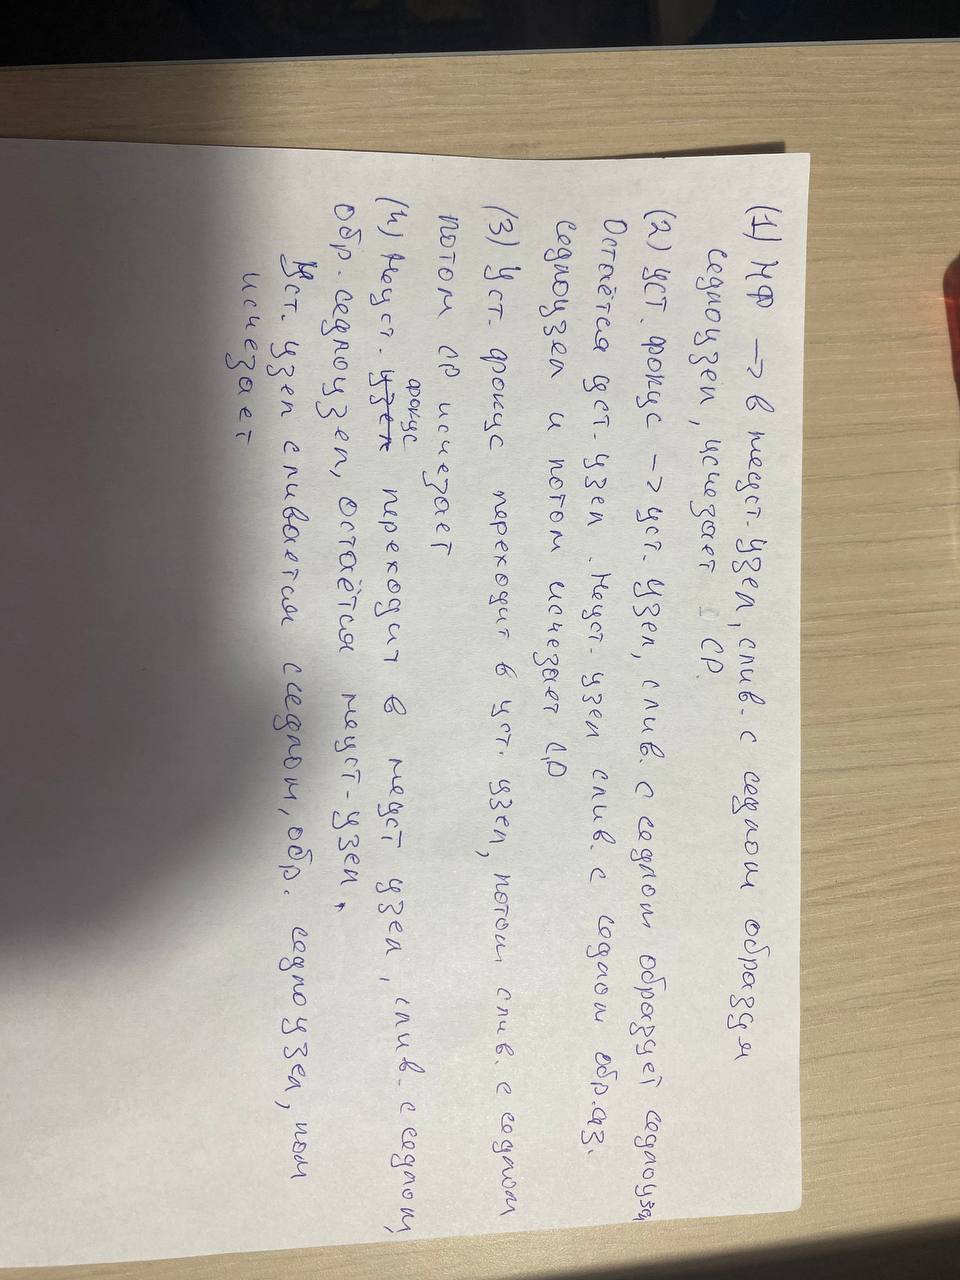 (1) НФ -> в неуст. узел, слив. с седлом образуя
седлоузел, исчезает СР.
(2) уст. фокус -> уст. узел, слив. с седлом образует седлоузел
Остаётся уст. узел. Неуст. узел слив. с седлом обр.аз.
седлоузел и потом исчезает СР
(3) Уст. фокус переходит в уст. узел, потом слив. с седлом
потом СР исчезает
(4) Неуст. узел фокус переходит в неуст узел, слив. с седлом,
обр. седлоузел, остаётся неуст. узел.
Уст. узел сливается с седлом, обр. седлоузел, пом
исчезает